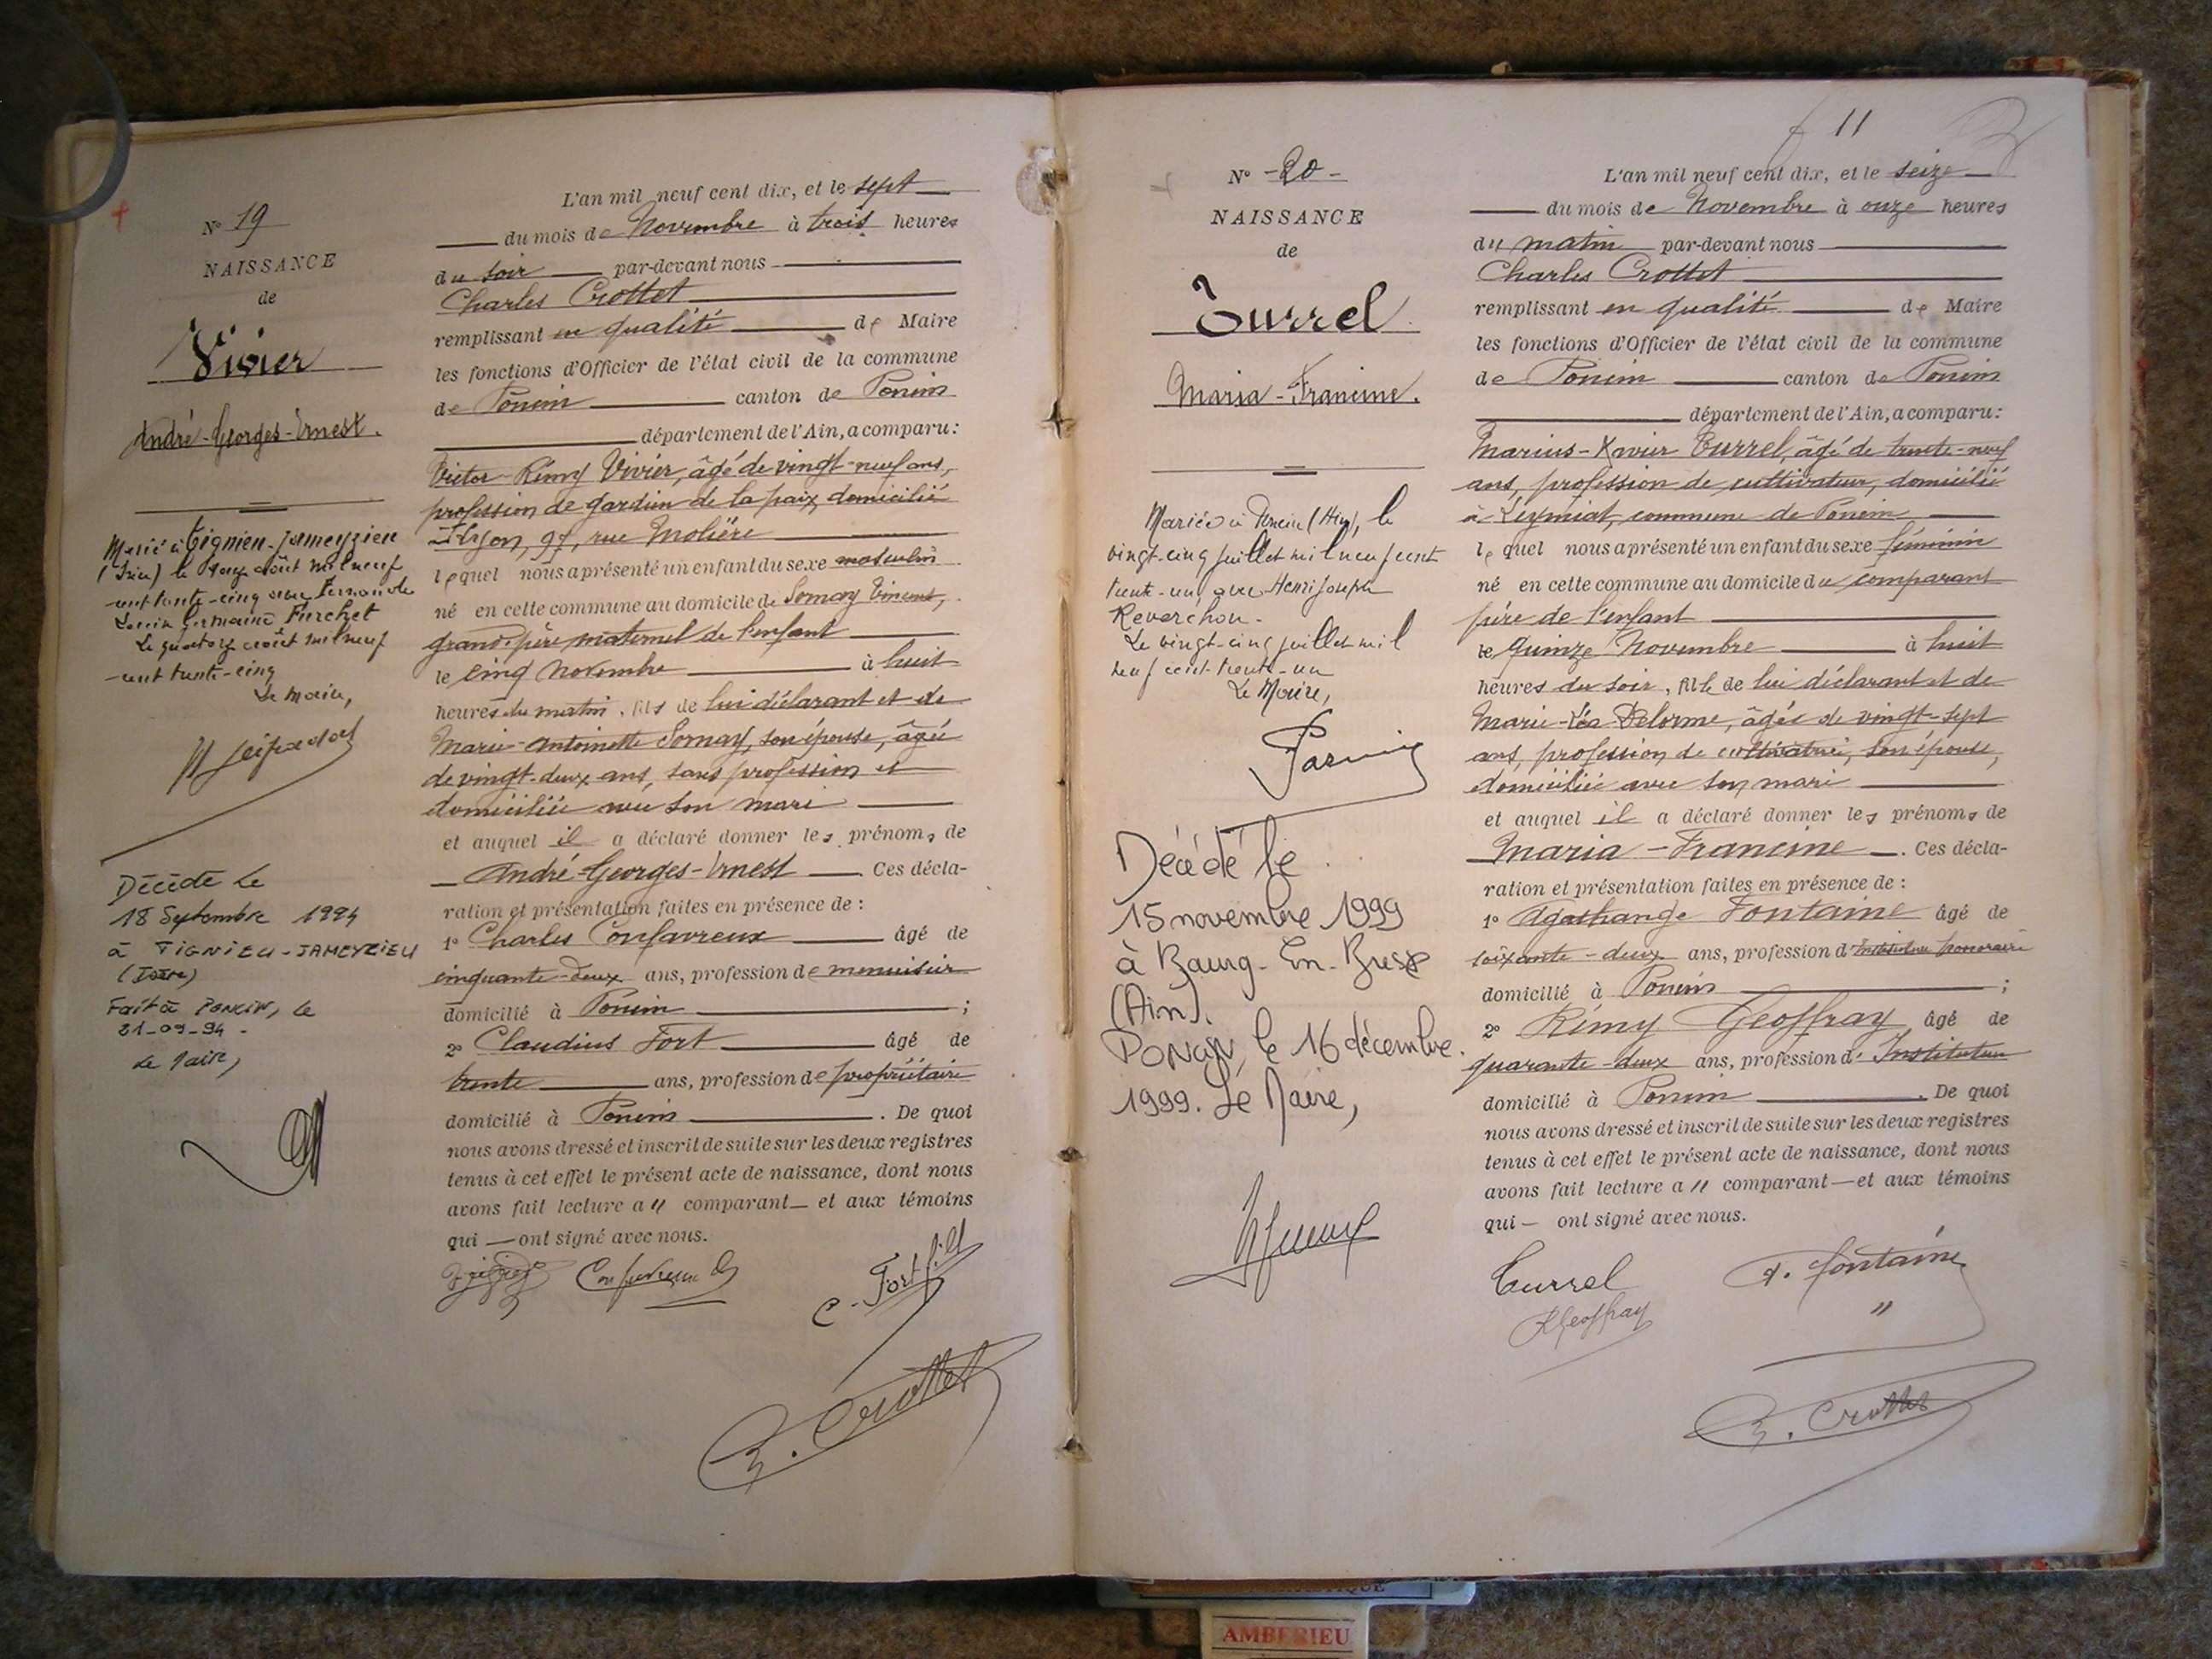 Nº 19
NAISSANCE
de
Vivier
André-Georges-Ernest.
Marié à Tignieu-Jameyzieu
(Isère) le août mil neuf
cent trente-cinq avec Fernande
Germaine Furchet
Le quatorze août mil neuf
cent trente-cinq
Le Maire,
Décédé Le
18 Septembre 1994
à TIGNIEU-JAMEYZIEU
(Isère)
Fait à PONCIN, le
21-09-94-
Le Maire,
L'an mil neuf cent dix, et le sept
du mois de Novembre à trois heures
du soir par-devant nous
Charles Crottet
remplissant en qualité de Maire
les fonctions d'Officier de l'état civil de la commune
de Poncin canton de Poncin
département de l'Ain, a comparu:
Victor-Rémy Vivier, âgé de vingt-neuf ans,
profession de gardien de la paix, domicilié
à Lyon, 97, rue Molière
lequel nous a présenté un enfant du sexe masculin
né en cette commune au domicile de Sornay Vincent,
grand-père maternel de l'enfant
le cinq Novembre à huit
heures du matin, fils de lui déclarant et de
Marie-Antoinette Sornay, son épouse, âgée
de vingt-deux ans, sans profession et
domiciliée avec son mari
et auquel il a déclaré donner les prénoms de
André-Georges-Ernest. Ces décla-
ration et présentation faites en présence de :
1º Charles Confavreux âgé de
cinquante-deux ans, profession de menuisier
domicilié à Poncin ;
2º Claudius Fort âgé de
trente ans, profession de propriétaire
domicilié à Poncin. De quoi
nous avons dressé et inscrit de suite sur les deux registres
tenus à cet effet le présent acte de naissance, dont nous
avons fait lecture au comparant et aux témoins
qui ont signé avec nous.
Confavreux
C. Fort fils
C. Crottet
11
Nº -20-
NAISSANCE
de
Turrel
Maria-Francine.
Mariée à Poncin (Ain), le
vingt-cinq juillet mil neuf cent
trente-un, avec Henri Joseph
Reverchon.
Le vingt-cinq juillet mil
neuf cent-trente-un
Le Maire,
Décédé le
15 novembre 1999
à Bourg-En-Bresse
(Ain).
PONCIN, le 16 décembre
1999. Le Maire,
L'an mil neuf cent dix, et le seize
du mois de Novembre à onze heures
du matin par-devant nous
Charles Crottet
remplissant en qualité de Maire
les fonctions d'Officier de l'état civil de la commune
de Poncin canton de Poncin
département de l'Ain, a comparu:
Marius-Xavier Turrel, âgé de trente-neuf
ans, profession de cultivateur, domicilié
à Leymiat, commune de Poncin
lequel nous a présenté un enfant du sexe féminin
né en cette commune au domicile du comparant
père de l'enfant
le quinze Novembre à huit
heures du soir, fille de lui déclarant et de
Marie-Léa Delorme, âgée de vingt-sept
ans, profession de cultivatrice, son épouse,
domiciliée avec son mari
et auquel il a déclaré donner les prénoms de
Maria-Francine. Ces décla-
ration et présentation faites en présence de :
1º Agathange Fontaine âgé de
soixante-deux ans, profession d'Instituteur honoraire
domicilié à Poncin ;
2º Rémy Geoffray âgé de
quarante-deux ans, profession d'Instituteur
domicilié à Poncin. De quoi
nous avons dressé et inscrit de suite sur les deux registres
tenus à cet effet le présent acte de naissance, dont nous
avons fait lecture au comparant et aux témoins
qui ont signé avec nous.
Turrel
A. Fontaine
RGeoffray
C. Crottet
AMBERIEU